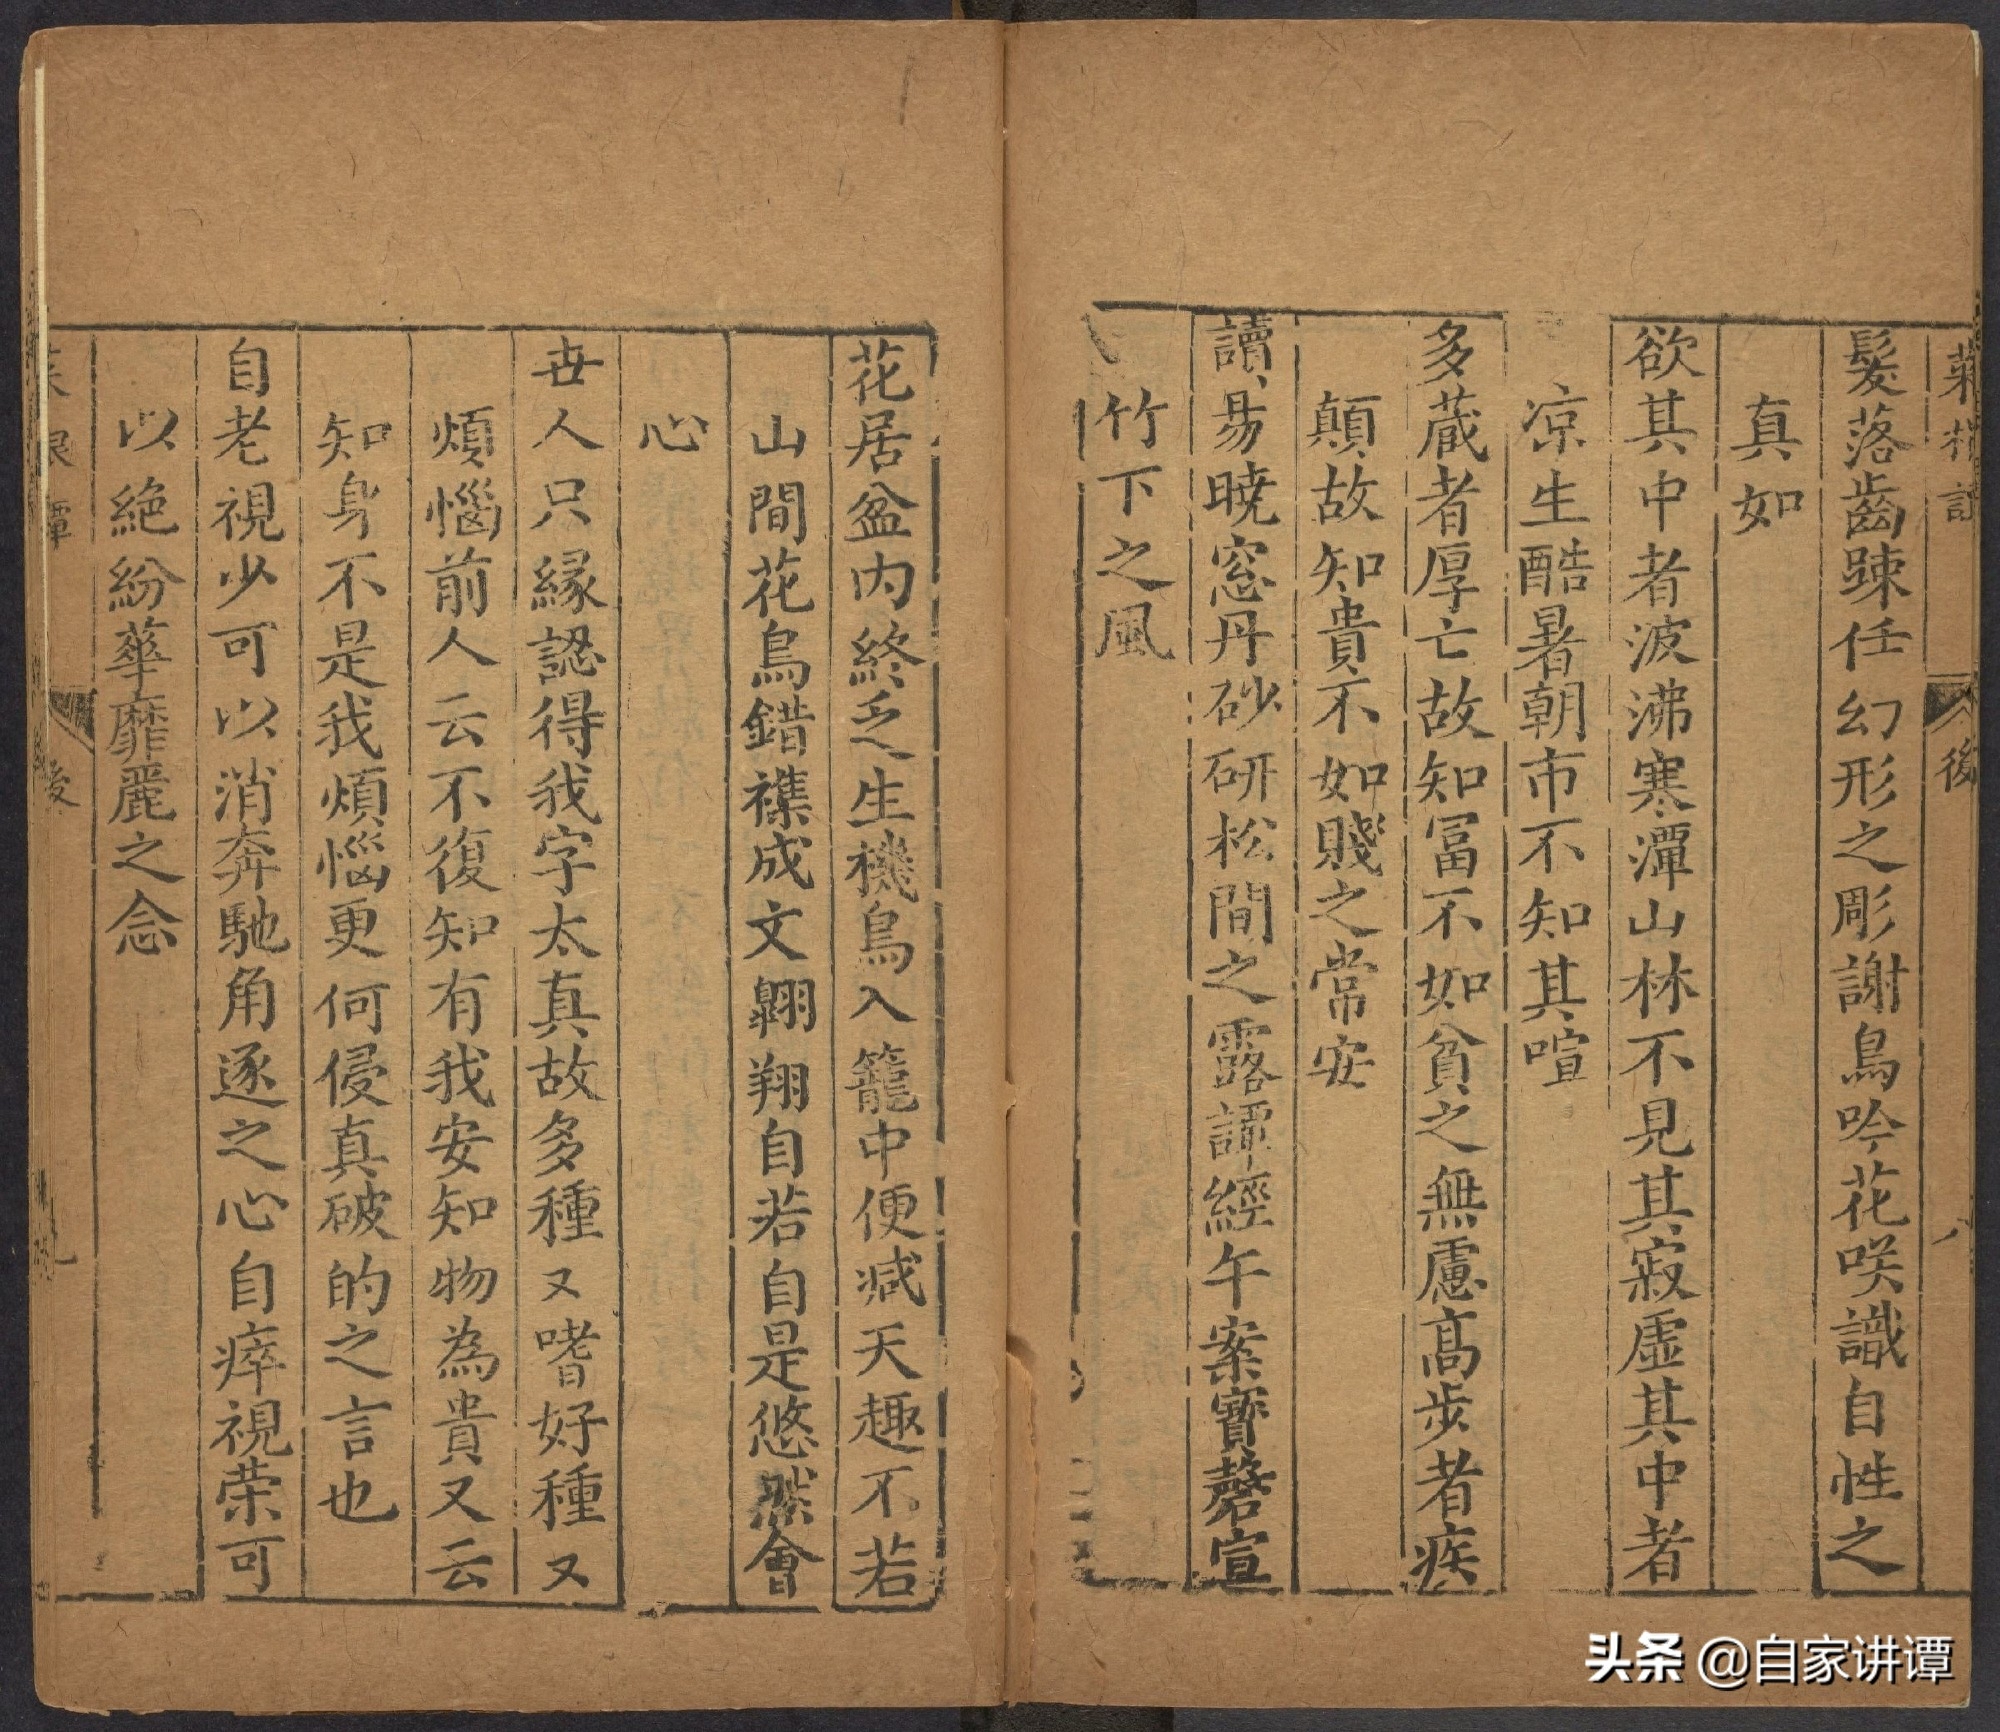 菜根譚
後
八
髮落齒踈任幻形之彫謝鳥吟花咲識自性之
真如
欲其中者波沸寒潭山林不見其寂虛其中者
凉生酷暑朝市不知其喧
多蔵者厚亡故知冨不如貧之無慮髙步者疾
顛故知貴不如賤之常安
讀易曉窓丹砂研松間之露譚經午案寶磬宣
竹下之風
花居盆内終乏生機鳥入籠中便减天趣不若
山間花鳥錯襍成文翶翔自若自是悠然會
心
世人只縁認得我字太真故多種又嗜好種又
煩惱前人云不復知有我安知物為貴又云
知身不是我煩惱更何侵真破的之言也
自老視少可以消奔馳角逐之心自瘁視荣可
以絶紛華靡麗之念
根譚
後
头条 @自家讲谭